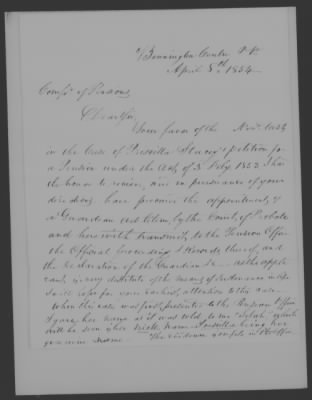 Bennington Centre
April 8th 1854
Com'r of Pensions,
Dear Sir,
Your favor of the Nov. 1853
in the case of Priscilla Stacy's petition for
a Pension under the Act of 3 Feby. 1853 I had
the honor to receive, and in pursuance of your
directions have procured the appointment of
a Guardian ad litem, by the Court of Probate
and herewith transmit to the Pension Office
the Official proceedings & Records thereof, and
the Declaration of the Guardian as the applic
ant is very destitute of the means of
for your earliest attention to this case.
When this case was first presented to the Pension Office
I gave her name as it was told to me which
will be seen is her Nick Name Priscilla being her
given name. The evidence is in the Office